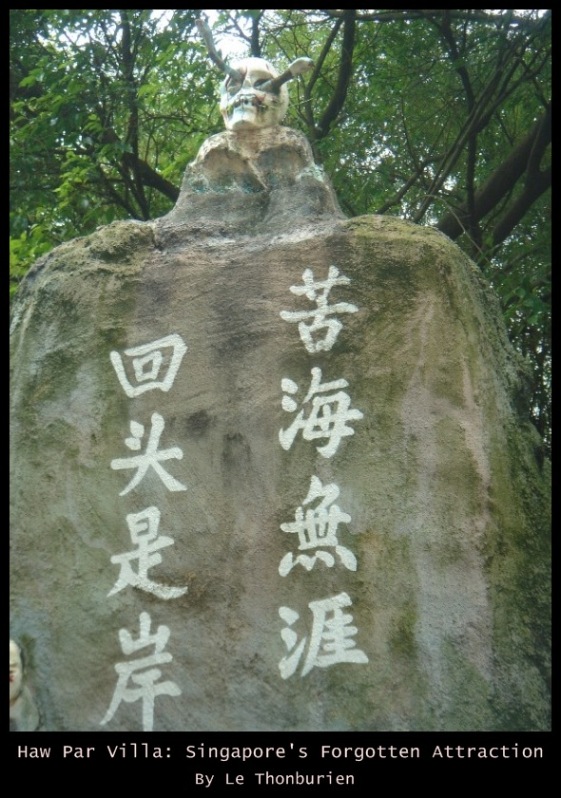 苦海無涯
回头是岸
Haw Par Villa: Singapore's Forgotten Attraction
By Le Thonburien